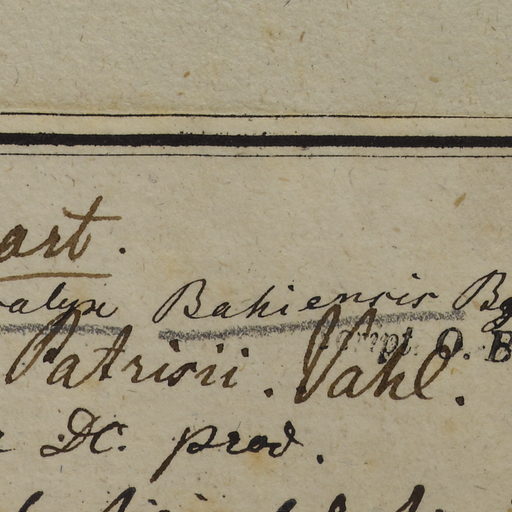 art.
calyx Bahiensis
Patrisii. Vahl.
DC. prod.